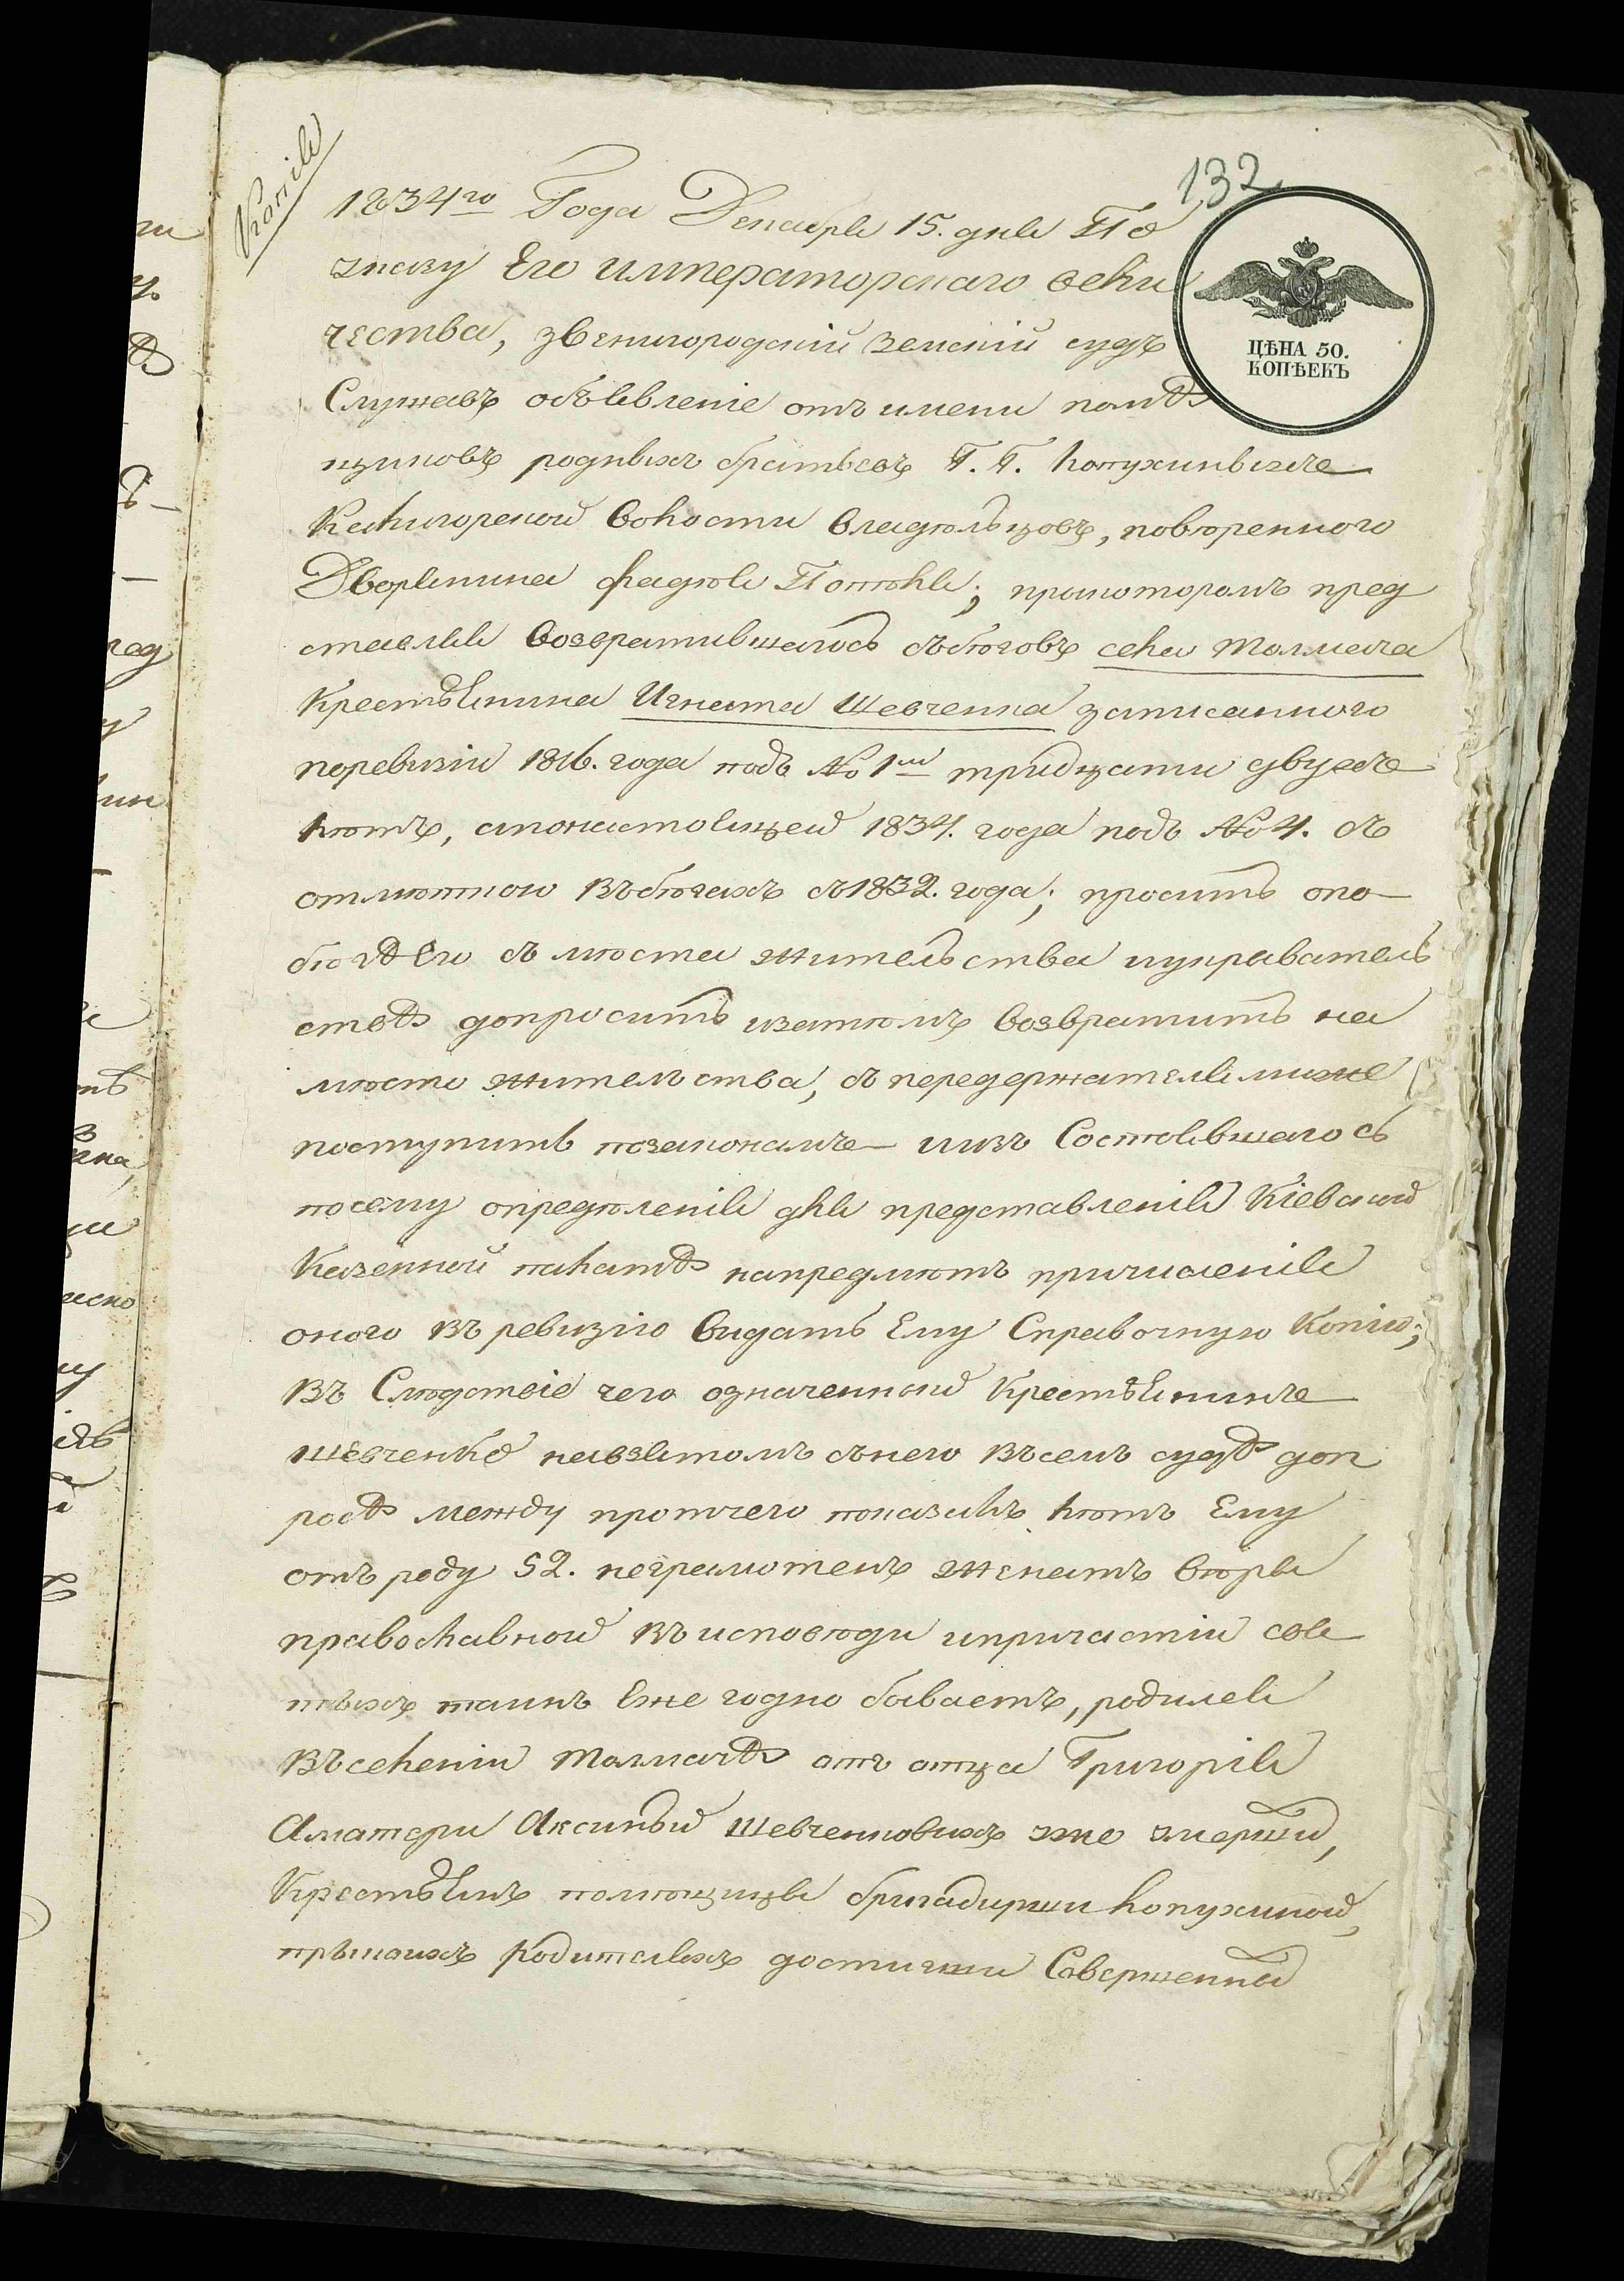 132
Копія
1834го Года Декабря 15. дня По
указу Его императорскаго вели
чества, звенигородскій земскій судъ
ЦѢНА 50.
КОПѢЕКЪ
Слушавъ объявленіе отъ имени помѣ
щиковъ родныхъ братьевъ Г. Г. Лопухиныхъ
Калигорской волости владѣльцовъ, повѣренного
Дворянина фадѣя Потѣхи; прикоторомъ пред
ставляя возвратившагось сбѣговъ села Толмача
Крестьянина Игната Шевченка записанного
поревизіи 1816. года подъ № 1м тридцати двухъ
лѣтъ, апонастоящей 1834. года подъ № 4. съ
отмѣткою въбѣгахъ съ1832. года; проситъ опо-
бѣгѣ Его съ мѣста жительства иукриватель
ствѣ допросить изатѣмъ возвратить на
мѣсто жительства, съ передержателями же
поступить позаконамъ иизъ Состоявшагось
посему опредѣленія для представленія Кіевской
Казенной палатѣ напредмѣтъ причисленія
оного въ ревизію видать Ему Справочную Копію;
въ Слѣдствіе чего означенный Крестьянинъ
Шевченко навзятомъ снего всемъ судѣ доп
росѣ между протчего показалъ лѣтъ Ему
отъ роду 52. неграмотенъ женатъ вѣры
православной въ исповѣди ипричастіи свя
тыхъ таинъ Еже годно бываетъ, родился
вселеніи Толмачѣ отъ отца Григорія
Аматери Аксиньи Шевченковихъ уже умерши,
Крестьянъ помѣщицы бригадирши Лопухиной,
прыкоихъ Родителяхъ достигши Совершенна